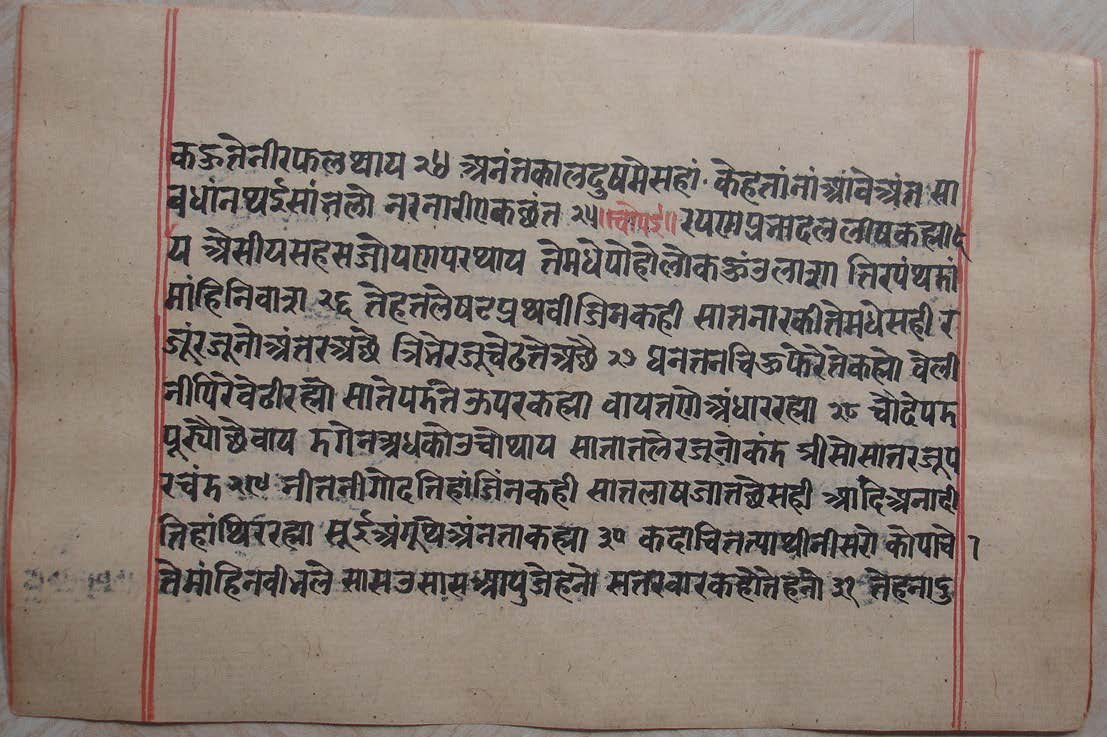 कछुतेनीरफलथाय २४ अनंतकालदुषमेसहां केहतांनांआंवेअंत सा
वधांनथईसांतलो नरनारीएकछंत २५ ॥चोपई॥
य असीयसहसजोयणपरथाय तेमधेपोहोलोक
मांहिनिवारा २६ तेहतलेषटप्रथवीजिनकही सातनारकीतेमधेसही र
जूंरजूनोअंतरअछै त्रितेरजूचेढतेअछै २७ घनतनचिऊफेरेतेकह्यो वेली
नीपिरेवेढीरह्यो सातेपर्दतेऊपरकह्या वायतणेअंधाररह्या २८ चौदेपद
पूर्योछेवाय सातातलेरजनोकंद त्रीसोसातरजूप
रचंद २९ नीतनीगोदतिहांजिंनकही सातलाषजातछेसही आदिअनादी
तिहांथिररह्या सूईअंगूथेअंनताकह्या ३० कदाचितत्याथीनीसरो कोपांचे १
तेमांहिनवीनले साससउसासआपुजेहनो सतरवारकहोतेहनो ३१ तेहनाउ